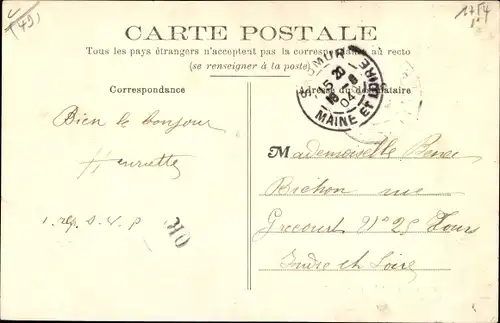 (49)
CARTE POSTALE
Tous les pays étrangers n'acceptent pas la correspondance au recto
(se renseigner à la poste)
SAUMUR
15 20
18 8
04
MAINE ET LOIRE
Correspondance
Adresse du destinataire
Bien le bonjour
Henriette
1. rép. S. V. P
210
Mademoiselle
Bichon rue
Grécourt N° 25 Tours
Indre et Loire